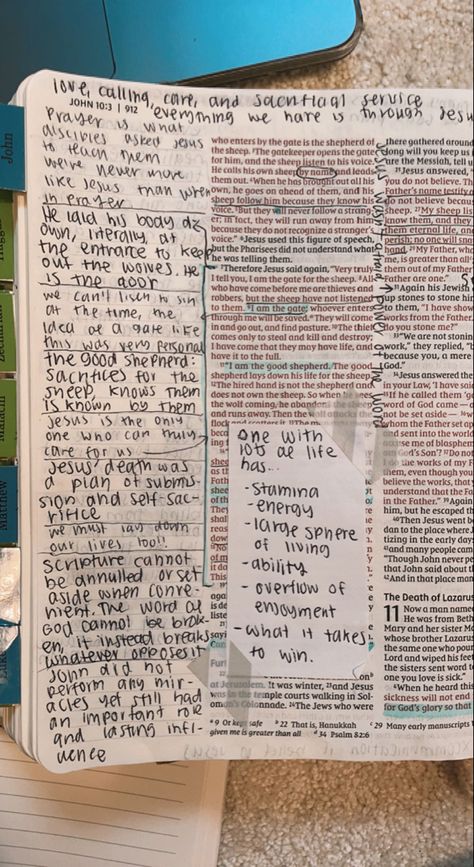 love, calling, care, and sacrificial service
JOHN 10:3 | 912
everything we have is through Jesus
Prayer is what
disciples asked Jesus
to teach them
we're never more
like Jesus than when
in prayer
He laid his body do
own, literally, at
the entrance to keep
out the wolves. He
is the door
we can't listen to sin
at the time, the
idea of a gate like
this was very personal
the good shepherd:
sacrifices for the
sheep, knows them
is known by them
Jesus is the only
one who can truly
care for us
Jesus' death was
a plan of submis-
sion and self-sac-
rifice
we must lay down
our lives too!!
Scripture cannot
be annulled or set
aside when conve-
nient. The word of
God cannot be brok-
en, it instead breaks
whatever opposes it
John did not
perform any mir-
acles yet still had
an important role
and lasting infl-
uence
John
Haggai
Zechariah
Malachi
Matthew
Luke
who enters by the gate is the shepherd of
the sheep. ³The gatekeeper opens the gate
for him, and the sheep listen to his voice.
He calls his own sheep by name and leads
them out. ⁴When he has brought out all his
own, he goes on ahead of them, and his
sheep follow him because they know his
voice. ⁵But they will never follow a strang-
er; in fact, they will run away from him
because they do not recognize a stranger's
voice." ⁶Jesus used this figure of speech,
but the Pharisees did not understand what
he was telling them.
⁷Therefore Jesus said again, "Very truly
I tell you, I am the gate for the sheep. ⁸All
who have come before me are thieves and
robbers, but the sheep have not listened
to them. ⁹I am the gate; whoever enters
through me will be saved. They will come
in and go out, and find pasture. ¹⁰The thief
comes only to steal and kill and destroy;
I have come that they may have life, and
have it to the full.
¹¹"I am the good shepherd. The good
shepherd lays down his life for the sheep.
¹²The hired hand is not the shepherd and
does not own the sheep. So when he
the wolf coming, he abandons the
and runs away. Then the wolf attacks the
one with
lots of life
has...
-stamina
-energy
-large sphere
of living
-ability
-overflow of
enjoyment
-what it takes
to win.
at Jerusalem. It was winter, ²³and Jesus
was in the temple courts walking in Sol-
omon's Colonnade. ²⁴The Jews who were
ª 9 Or kept safe
ᵇ 22 That is, Hanukkah
ᶜ 29 Many early manuscripts
given me is greater than all
ᵈ 34 Psalm 82:6
there gathered around
long will you keep us
are the Messiah, tell
²⁵Jesus answered,
you do not believe. Th
Father's name testify
do not believe because
²⁷My sheep li
know them, and they
them eternal life, and
perish; no one will sne
hand. ²⁹My Father, wh
me, is greater than all
them out of my Father
Father are one."
³¹Again his Jewish
up stones to stone hi
to them, "I have show
works from the Father
do you stone me?"
³³"We are not stonin
work," they replied, "b
because you, a mere
God."
³⁴Jesus answered th
in your Law, 'I have sai
³⁵If he called them 'g
word of God came —
not be set aside —
whom the Father set ap
and sent into the world
cuse me of blasphem
God's Son'? ³⁷Do not
the works of my F
them, even though you
believe the works, that y
understand that the Fa
in the Father." ³⁹Again t
him, but he escaped th
⁴⁰Then Jesus went b
dan to the place where J
tizing in the early days
⁴¹and many people cam
"Though John never pe
that John said about th
⁴²And in that place man
The Death of Lazarus
11 Now a man name
He was from Beth
Mary and her sister M
whose brother Lazaru
the same one who pou
Lord and wiped his fee
the sisters sent word t
one you love is sick."
⁴When he heard
sickness will not end
for God's glory so that